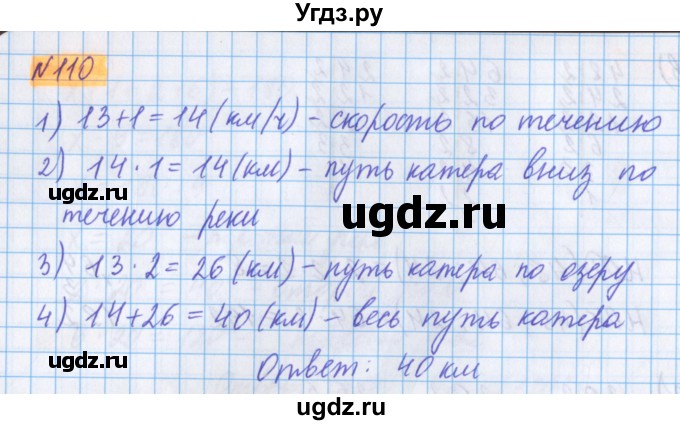 Угдз.ру
№110
1) 13+1=14 (км/ч) - скорость по течению
2) 14·1=14 (км) - путь катера вниз по
ugdz.ru
ugdz.ru
течению реки
3) 13·2=26 (км) - путь катера по озеру
4) 14+26=40 (км) - весь путь катера
ugdz.ru
Ответ: 40 км
ugdz.ru